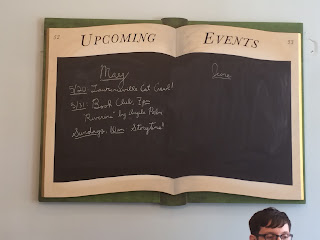 12
UPCOMING EVENTS
13
May
5/20: Lawrenceville Cat Crawl!
5/31: Book Club, 7pm
"Riverine" by Angela Palm
Sundays, Storytime!
June